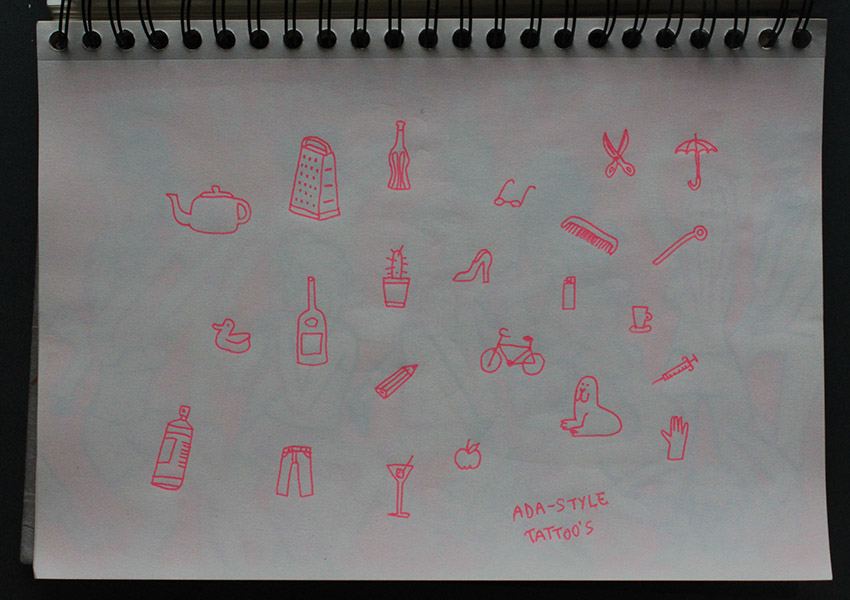 ADA-STYLE
TATTOO'S